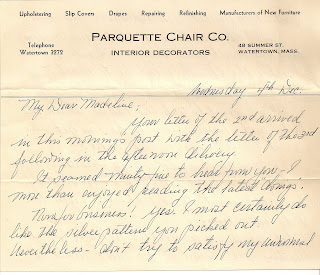 Upholstering Slip Covers Drapes Repairing Refinishing Manufacturers of New Furniture
PARQUETTE CHAIR CO.
INTERIOR DECORATORS
Telephone
Watertown 3272
48 SUMMER ST.
WATERTOWN, MASS.
Wednesday 4th Dec.
My Dear Madeline;
Your letter of the 2nd arrived
in this mornings post with the letter of the 3rd
following in the afternoon delivery
It seemed mighty fine to hear from you - I
more than enjoyed reading the latest doings.
Now for business! Yes! I most certainly do
like the silver pattern you picked out
Nevertheless - don't try to satisfy my